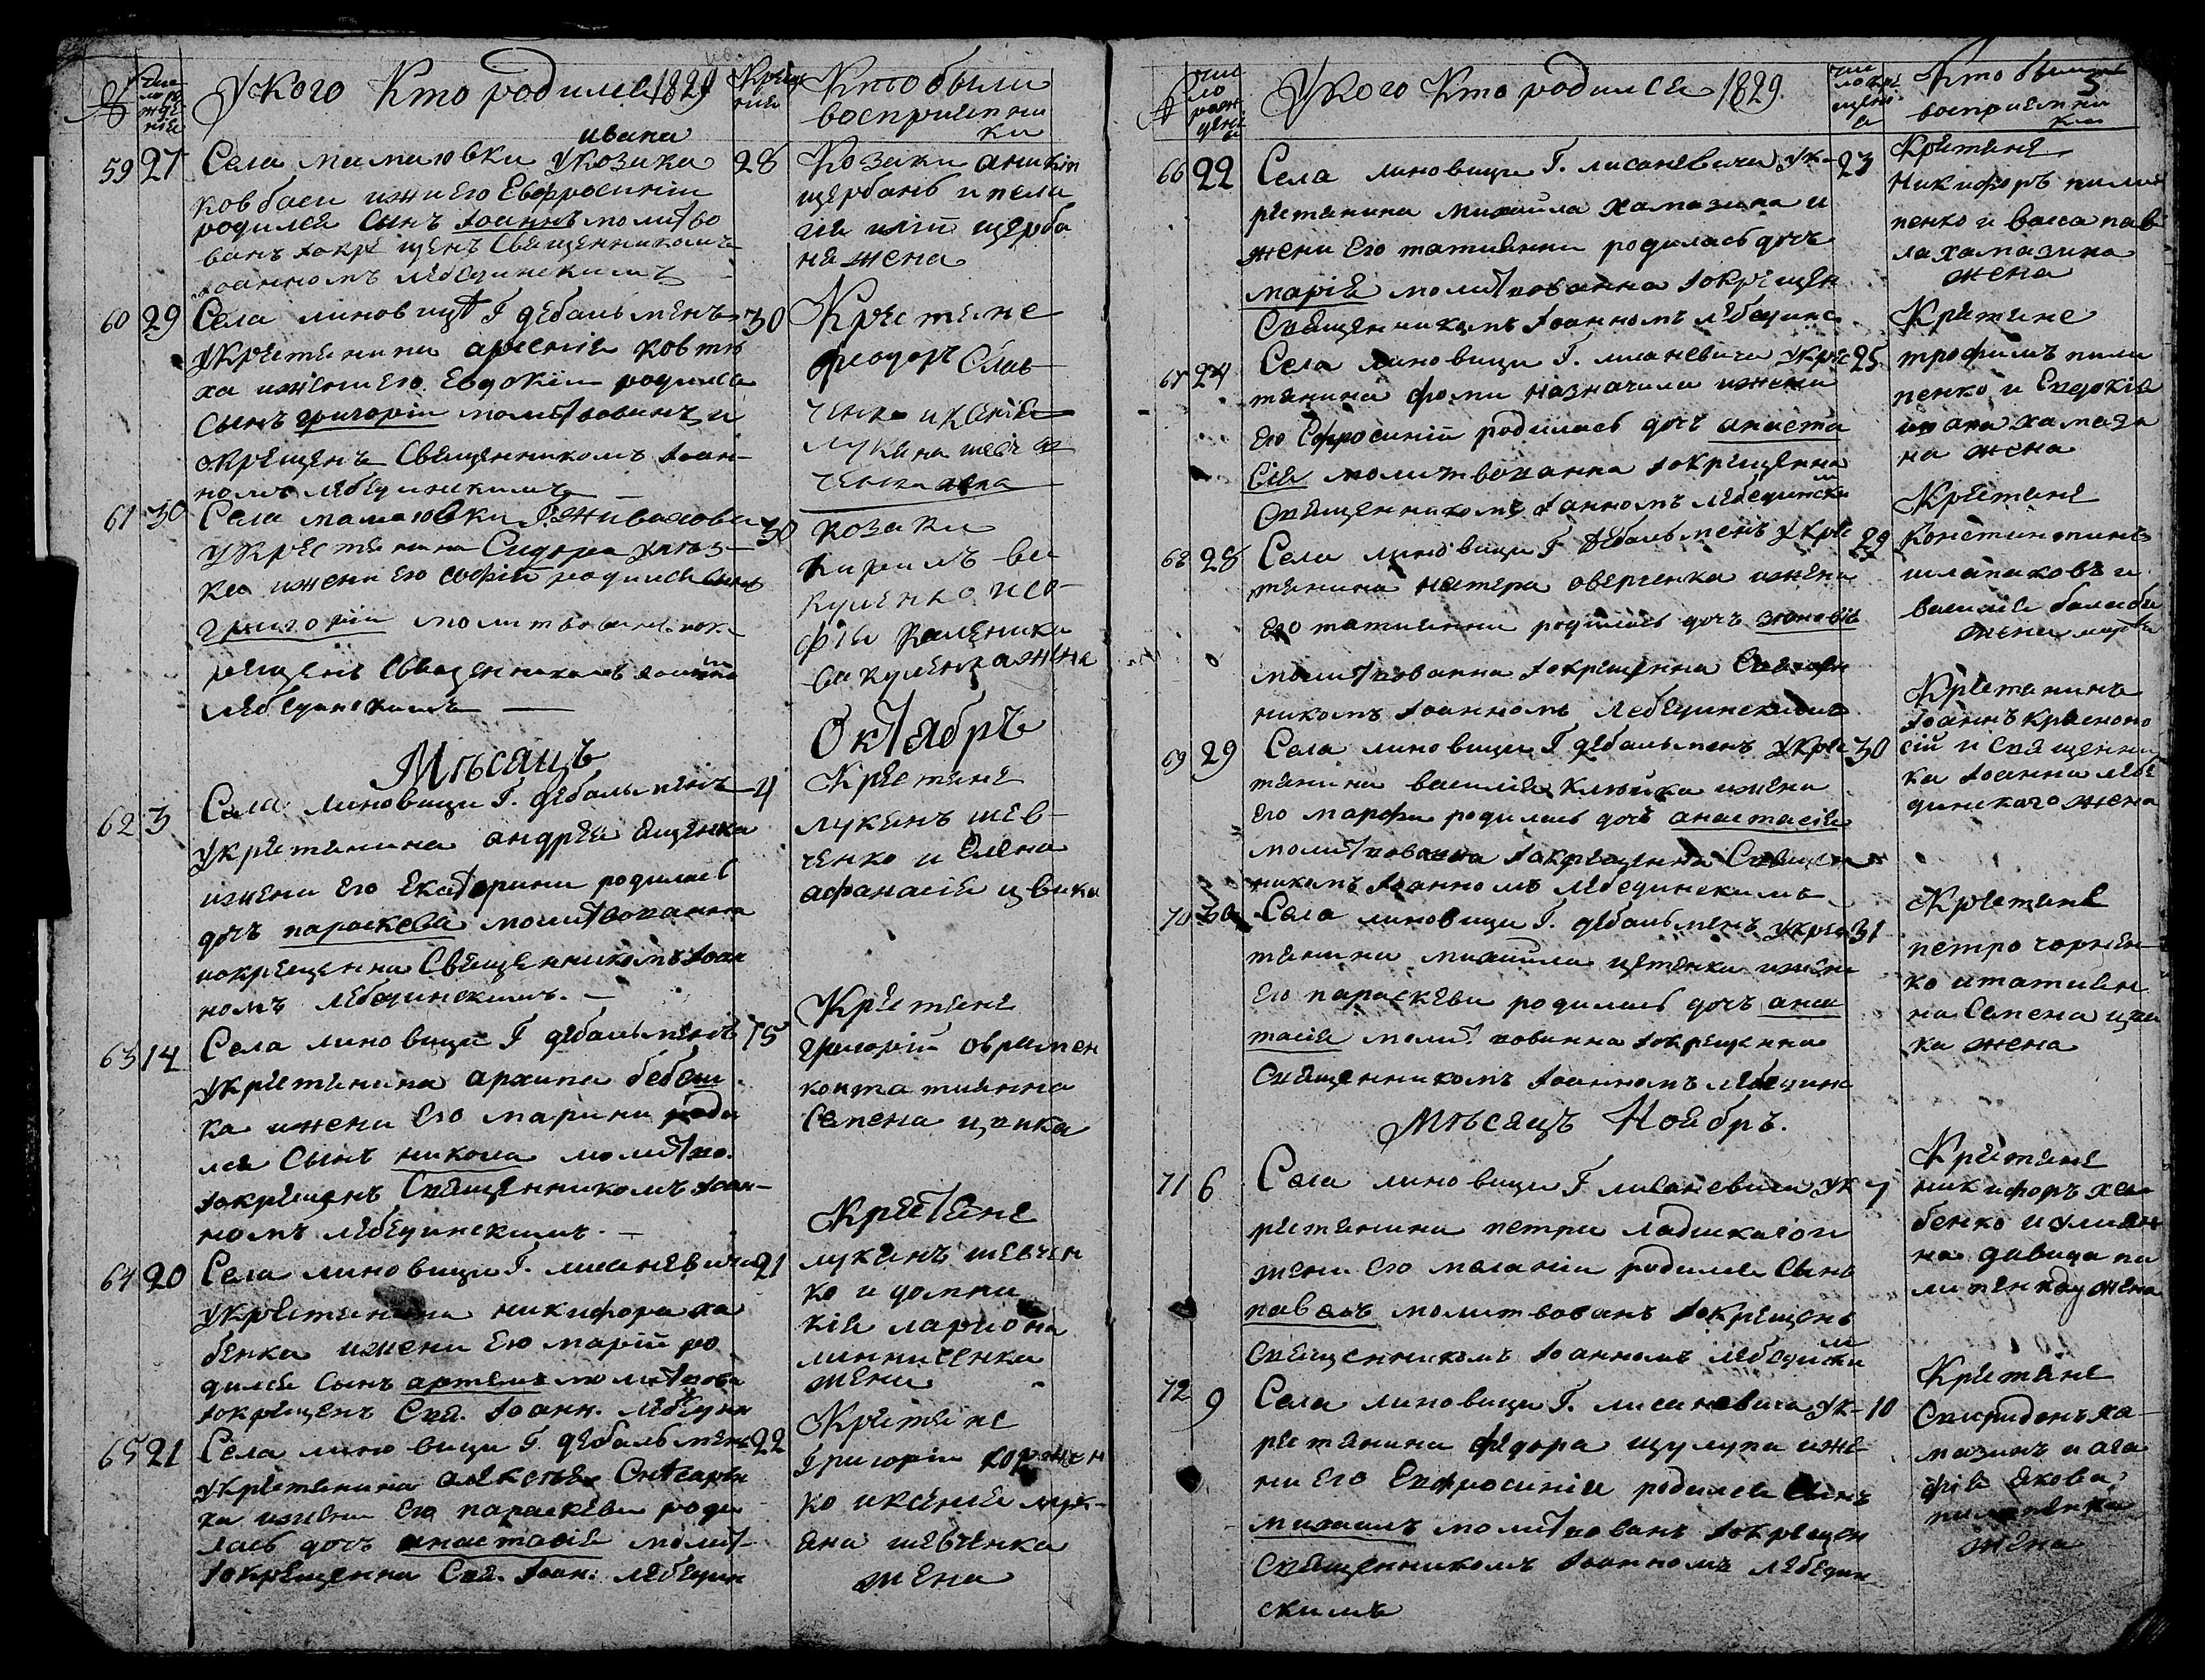 №
Чис
ло ро
жде
нія
У кого Кто родился 1829
Креще
нія
Кто были
воспріемни
ки
ивана
59 27 Села мамаювки У козака 28
ковбаси и жени его Евфросиніи
родился сынъ Іоаннъ молитво
ванъ и окрещенъ Священникомъ
Іоанномъ Лебединскимъ
Козаки
щербанъ и пела
гія щерба
ня жена
60 29 Села линовици Г дебальменъ 30
У крестянина арсенія ковтю
ха и жени его Евдокіи родился
сынъ григорій молитвованъ и
окрещенъ Священникомъ Іоан-
номъ лебединскимъ
Крестяне
феодоръ Слав
ченко и ксенія
лукяна шевч
ченка жена
61 30 Села мамаювки Г. 30
У крестянина Сидора
ка и жени его софіи родился сынъ
григорій молитвованъ и ок-
рещенъ Священникомъ
лебединскимъ
козаки
Кирилъ ва
куленко и со-
фія
вакуленка жена
Мѣсяцъ
Октябрь
62 3 Села линовици Г. дебальменъ 4
У крестянина андрея ященка
и жени его Екатерини родилась
дочь параскева молитвованна
и окрещенна Священникомъ Іоан
номъ лебединскимъ.
Крестяне
лукянъ шев-
ченко и Елена
афанасія цвика
63 14 Села линовици Г дебальменъ 15
У крестянина архипа бебеш
ка и жени его марини роди
лся сынъ никола молитво.
и окрещенъ Священникомъ Іоан-
номъ лебединскимъ.
Крестяне
григорій оврамен
ко и татиянна
Семена цвика
64 20 Села линовици Г. лисаневича 21
У крестянина никифора ха
бенка и жени его маріи ро
дился сынъ артемъ молитвова
и окрещенъ Свя. Іоанн. лебедин
Крестяне
лукянъ шевчен
ко и домни
кія лариона
линниченка
жена
65 21 Села линовици Г. дебальмен 22
У крестянина алексѣя
ка и жени его параскеви роди
лась дочь анастасія молит
и окрещенна Свя. Іоан. лебедин
Крестяне
Григорій
ко и ксенія лук-
яна шевченка
жена
№
чис
ло
рож
дені
я
У кого Кто родился 1829
чис
ло кре
щені
я
Кто были
воспріемни
ки
5
66 22 Села линовици Г. лисаневича У к- 23
рестянина михаила хамазина и
жени его татиянни родилась дочь
марія молитвованна и окрещен
Священникомъ Іоанномъ лебединс
Крестяне
Никифоръ пили
пенко и васса пав
ла хамазина
жена
67 24 Села линовици Г. лисаневича У кре 25
тянина фоми назначила и жени
его Ефросиніи родилась дочь анаста
сія молитвованна и окрещенна
Священникомъ Іоанномъ лебединским
Крестяне
трофимъ пили
пенко и Евдокія
хамази
на жена
68 28 Села линовици Г дебальменъ У крес 29
тянина нестера оверченка и жени
его татиянни родилась дочь зиновія
молитвованна и окрещенна Священ
никомъ Іоанномъ лебединскимъ
Крестяне
Константинъ
шлапаковъ и
василія
жена марфа
69 29 Села линовици Г дебальменъ У крес 30
тянина василія и жени
его марфи родилась дочь анастасія
молитвованна и окрещенна Священ
никомъ Іоанномъ лебединскимъ
Крестянинъ
Іоаннъ красноно
сій и священни
ка Іоанна лебе
динскаго жена
70 30 Села линовици Г. дебальменъ У крес 31
тянина михаила и жени
его параскеви родилась дочь анас
тасія молитвованна и окрещенна
Священникомъ Іоанномъ лебединс
Крестяне
петро чорнен
ко и татиян
на Семена цви
ка жена
мѣсяцъ Ноябрь.
71 6 Села линовици Г лисаневича У к 7
рестянина петра ладики и
жени его меланіи родился сынъ
павелъ молитвованъ и окрещенъ
Священникомъ Іоанномъ лебединским
Крестяне
никифоръ ха
бенко и улиян
на давида пи
липенка жена
72 9 Села линовици Г. лисаневича У к- 10
рестянина федора шулупа и же-
ни его Евфросиніи родился сынъ
михаилъ молитвованъ и окрещен
Священникомъ Іоанномъ лебедин
скимъ
Крестяне
Спиридонъ ха-
мазинъ и ага
фія якова
пилипенка
жена